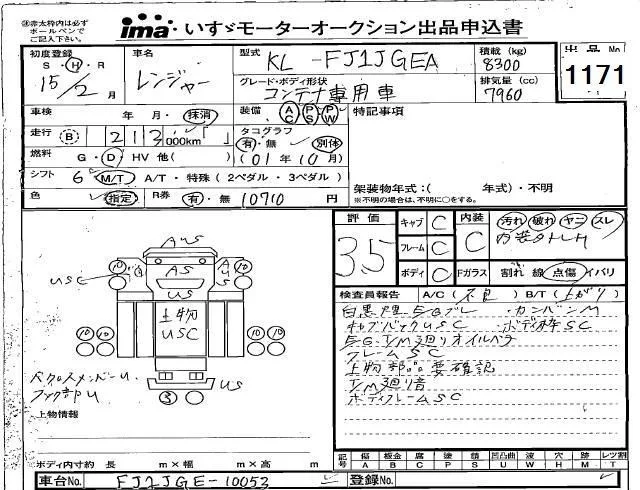 ※赤太枠内は必ず
ボールペンで
ご記入下さい。
ima いすゞモーターオークション出品申込書
初度登録
S・H・R
15/2月
車名
レンジャー
型式
KL-FJ1JGEA
積載 (kg)
8300
グレード・ボディ形状
コンテナ専用車
排気量 (cc)
7960
出品No
1171
車検 年・月・抹消
装備 AC PS PW
特記事項
走行 B 1 212 000km
タコグラフ
有・無 別体
燃料 G・D・HV 他( )
(01年10月)
シフト 6 M/T・A/T・特殊(2ペダル・3ペダル)
架装物年式:( 年式)・不明
※不明の場合は、不明に○をする。
色 指定 R券 有・無 10710円
評価
3.5
キャブ C
フレーム C
ボディ C
内装 C
汚れ 破れ ヤニ スレ
内装タレM
Fガラス 割れ 線 点傷 イバリ
検査員報告 A/C(不良) B/T(上がり)
白黒煙 EGブレ ・カンバンM
キャブバックUSC ・ボディ枠SC
EG・T/M廻りオイルベタ
フレームSC
上物部品要確認
T/M廻り音
ボディフレームSC
AUS
10
10
USC
AS
AUS
US
上物
USC
10 10
10 10
バックスメンバーU
フック部U
US
3
上物情報
ボディ内寸約 長 m×幅 m×高 m
記号
傷 A
板金 B
腐 C
塗 P
錆 S
凹凸曲 U
波 W
穴 H
跡 M
レツ割 T
車台No. FJ1JGE-10053
登録No.